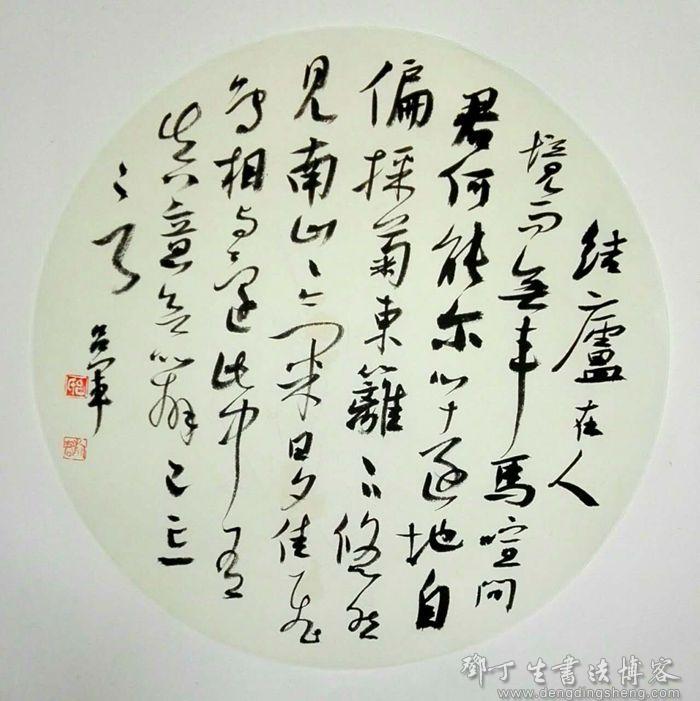 結廬在人
境而無車馬喧問
君何能尔心遠地自
偏採菊東籬下悠然
見南山山氣日夕佳飛
鳥相與還此中有
真意欲辨已忘
言
鄧丁生書法博客
www.dengdingsheng.com